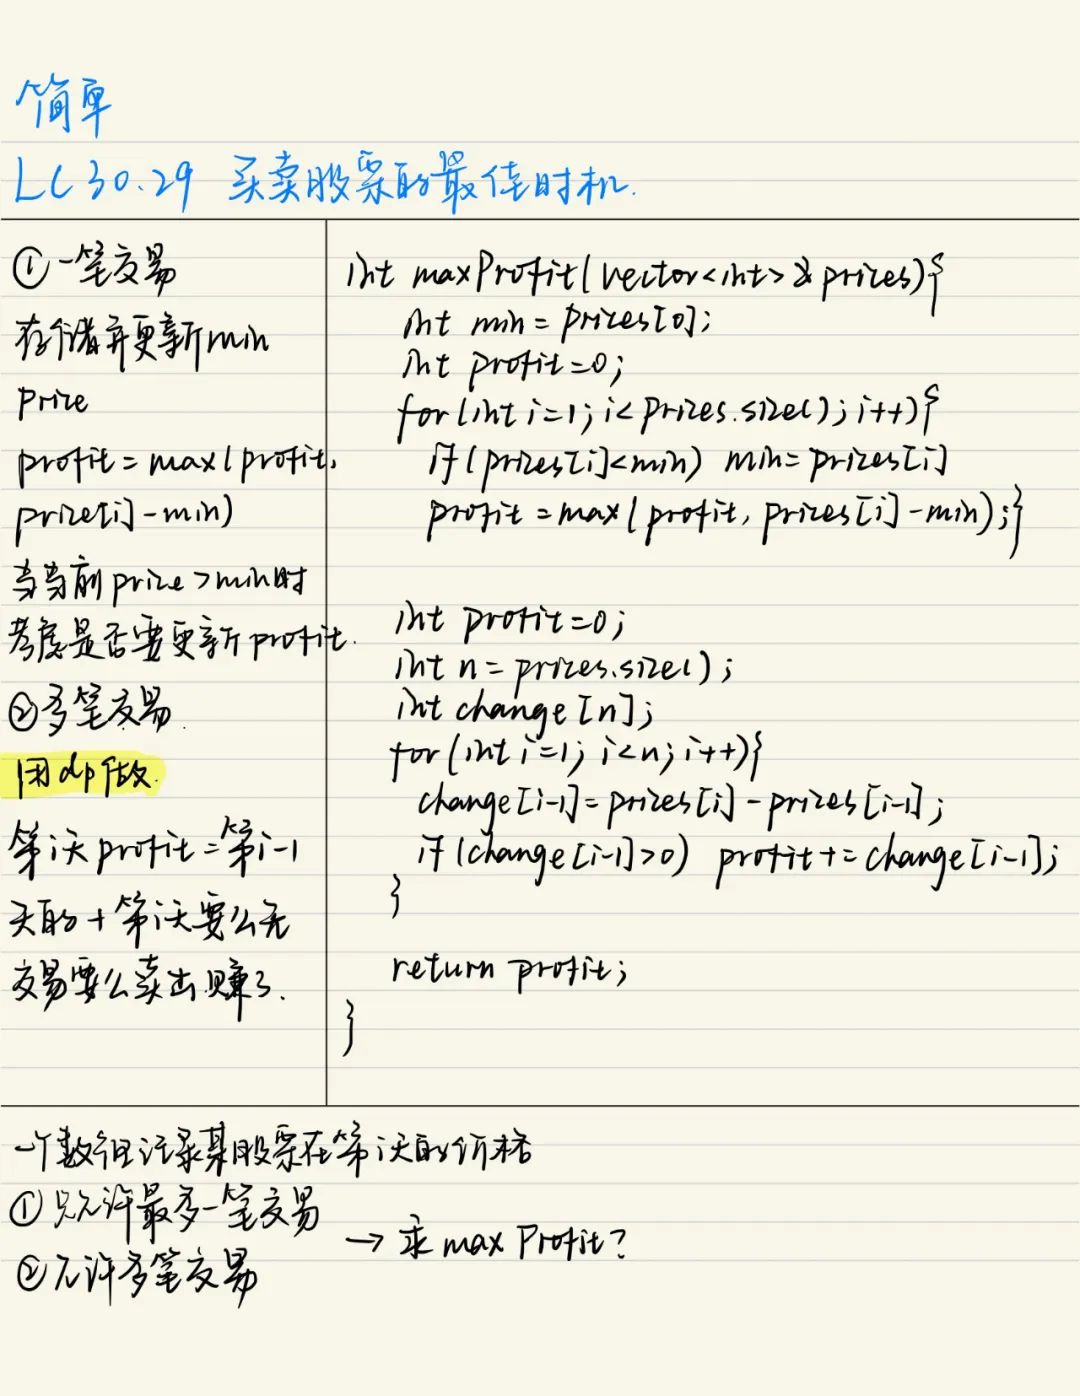 简单
LC30.29 买卖股票的最佳时机.
①一笔交易
存储并更新min
price
profit=max(profit,
price[i]-min)
当当前price>min时
考虑是否要更新profit.
②多笔交易.
用dp做.
第i天profit=第i-1
天的+第i天要么无
交易要么卖出赚了.
int maxProfit(vector<int>& prices){
int min=prices[0];
int profit=0;
for(int i=1;i<prices.size();i++){
if(prices[i]<min) min=prices[i]
profit=max(profit,prices[i]-min);}
int profit=0;
int n=prices.size();
int change[n];
for(int i=1;i<n;i++){
change[i-1]=prices[i]-prices[i-1];
if(change[i-1]>0) profit+=change[i-1];
}
return profit;
}
一个数组记录某股票在第i天的价格
①只允许最多一笔交易
②允许多笔交易
→ 求max Profit?